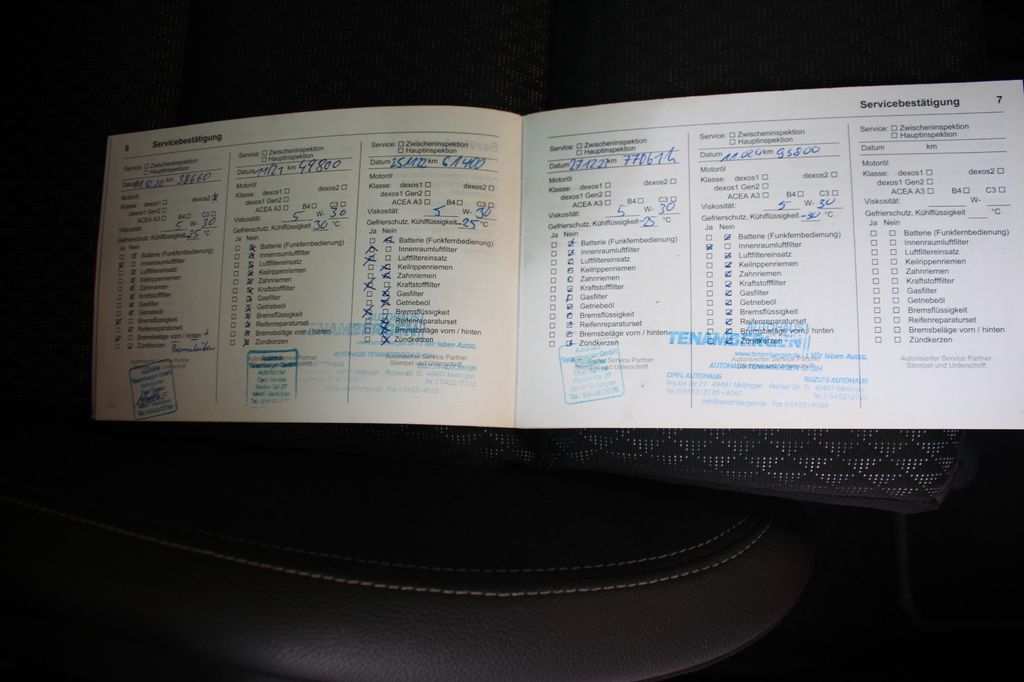 6 Servicebestätigung
Service: ☐ Zwischeninspektion
☐ Hauptinspektion
km 38660
Motoröl
Klasse: dexos1 ☐ dexos2
dexos1 Gen2 ☐
ACEA A3 ☐ B4 ☐ C3 ☐
Viskosität: 5 W- 30
Gefrierschutz, Kühlflüssigkeit -25 °C
Ja Nein
Batterie (Funkfernbedienung)
Innenraumluftfilter
Luftfiltereinsatz
Keilrippenriemen
Zahnriemen
Kraftstofffilter
Gasfilter
Getriebeöl
Bremsflüssigkeit
Reifenreparaturset
Bremsbeläge vorn / hinten
Zündkerzen
Autorisierter Service Partner
Service: ☐ Zwischeninspektion
☐ Hauptinspektion
Datum 11/21 km 49800
Motoröl
Klasse: dexos1 ☐ dexos2 ☐
dexos1 Gen2 ☐
ACEA A3 ☐ B4 ☐ C3 ☐
Viskosität: 5 W- 30
Gefrierschutz, Kühlflüssigkeit 30 °C
Ja Nein
Batterie (Funkfernbedienung)
Innenraumluftfilter
Luftfiltereinsatz
Keilrippenriemen
Zahnriemen
Kraftstofffilter
Gasfilter
Getriebeöl
Bremsflüssigkeit
Reifenreparaturset
Bremsbeläge vorn / hinten
Zündkerzen
Service: ☐ Zwischeninspektion
☐ Hauptinspektion
Datum 25.11.22 km 61400
Motoröl
Klasse: dexos1 ☐ dexos2 ☐
dexos1 Gen2 ☐
ACEA A3 ☐ B4 ☐ C3 ☐
Viskosität: 5 W- 30
Gefrierschutz, Kühlflüssigkeit -25 °C
Ja Nein
Batterie (Funkfernbedienung)
Innenraumluftfilter
Luftfiltereinsatz
Keilrippenriemen
Zahnriemen
Kraftstofffilter
Gasfilter
Getriebeöl
Bremsflüssigkeit
Reifenreparaturset
Bremsbeläge vorn / hinten
Zündkerzen
Wir leben Autos.
AUTOHAUS TENAMBERGEN
Autorisierter Service Partner
Stempel und Unterschrift
Servicebestätigung 7
Service: ☐ Zwischeninspektion
☐ Hauptinspektion
Datum 27.12.23 km 77061
Motoröl
Klasse: dexos1 ☐ dexos2 ☐
dexos1 Gen2 ☐
ACEA A3 ☐ B4 ☐ C3 ☐
Viskosität: 5 W- 30
Gefrierschutz, Kühlflüssigkeit -25 °C
Ja Nein
Batterie (Funkfernbedienung)
Innenraumluftfilter
Luftfiltereinsatz
Keilrippenriemen
Zahnriemen
Kraftstofffilter
Gasfilter
Getriebeöl
Bremsflüssigkeit
Reifenreparaturset
Bremsbeläge vorn / hinten
Zündkerzen
Autorisierter Service Partner
Service: ☐ Zwischeninspektion
☐ Hauptinspektion
Datum km 93800
Motoröl
Klasse: dexos1 ☐ dexos2 ☐
dexos1 Gen2 ☐
ACEA A3 ☐ B4 ☐ C3 ☐
Viskosität: 5 W- 30
Gefrierschutz, Kühlflüssigkeit -30 °C
Ja Nein
Batterie (Funkfernbedienung)
Innenraumluftfilter
Luftfiltereinsatz
Keilrippenriemen
Zahnriemen
Kraftstofffilter
Gasfilter
Getriebeöl
Bremsflüssigkeit
Reifenreparaturset
Bremsbeläge vorn / hinten
Zündkerzen
AUTOHAUS
TENAMBERGEN
www.tenambergen.de Wir leben Autos.
AUTOHAUS TENAMBERGEN GMBH
OPEL-AUTOHAUS SUZUKI-AUTOHAUS
Recker Str. 27 · 49497 Mettingen Recker Str. 10 · 49497 Mettingen
info@tenambergen.de · Fax 05452/4088
Service: ☐ Zwischeninspektion
☐ Hauptinspektion
Datum km
Motoröl
Klasse: dexos1 ☐ dexos2 ☐
dexos1 Gen2 ☐
ACEA A3 ☐ B4 ☐ C3 ☐
Viskosität: W-
Gefrierschutz, Kühlflüssigkeit °C
Ja Nein
☐ ☐ Batterie (Funkfernbedienung)
☐ ☐ Innenraumluftfilter
☐ ☐ Luftfiltereinsatz
☐ ☐ Keilrippenriemen
☐ ☐ Zahnriemen
☐ ☐ Kraftstofffilter
☐ ☐ Gasfilter
☐ ☐ Getriebeöl
☐ ☐ Bremsflüssigkeit
☐ ☐ Reifenreparaturset
☐ ☐ Bremsbeläge vorn / hinten
☐ ☐ Zündkerzen
Autorisierter Service Partner
Stempel und Unterschrift